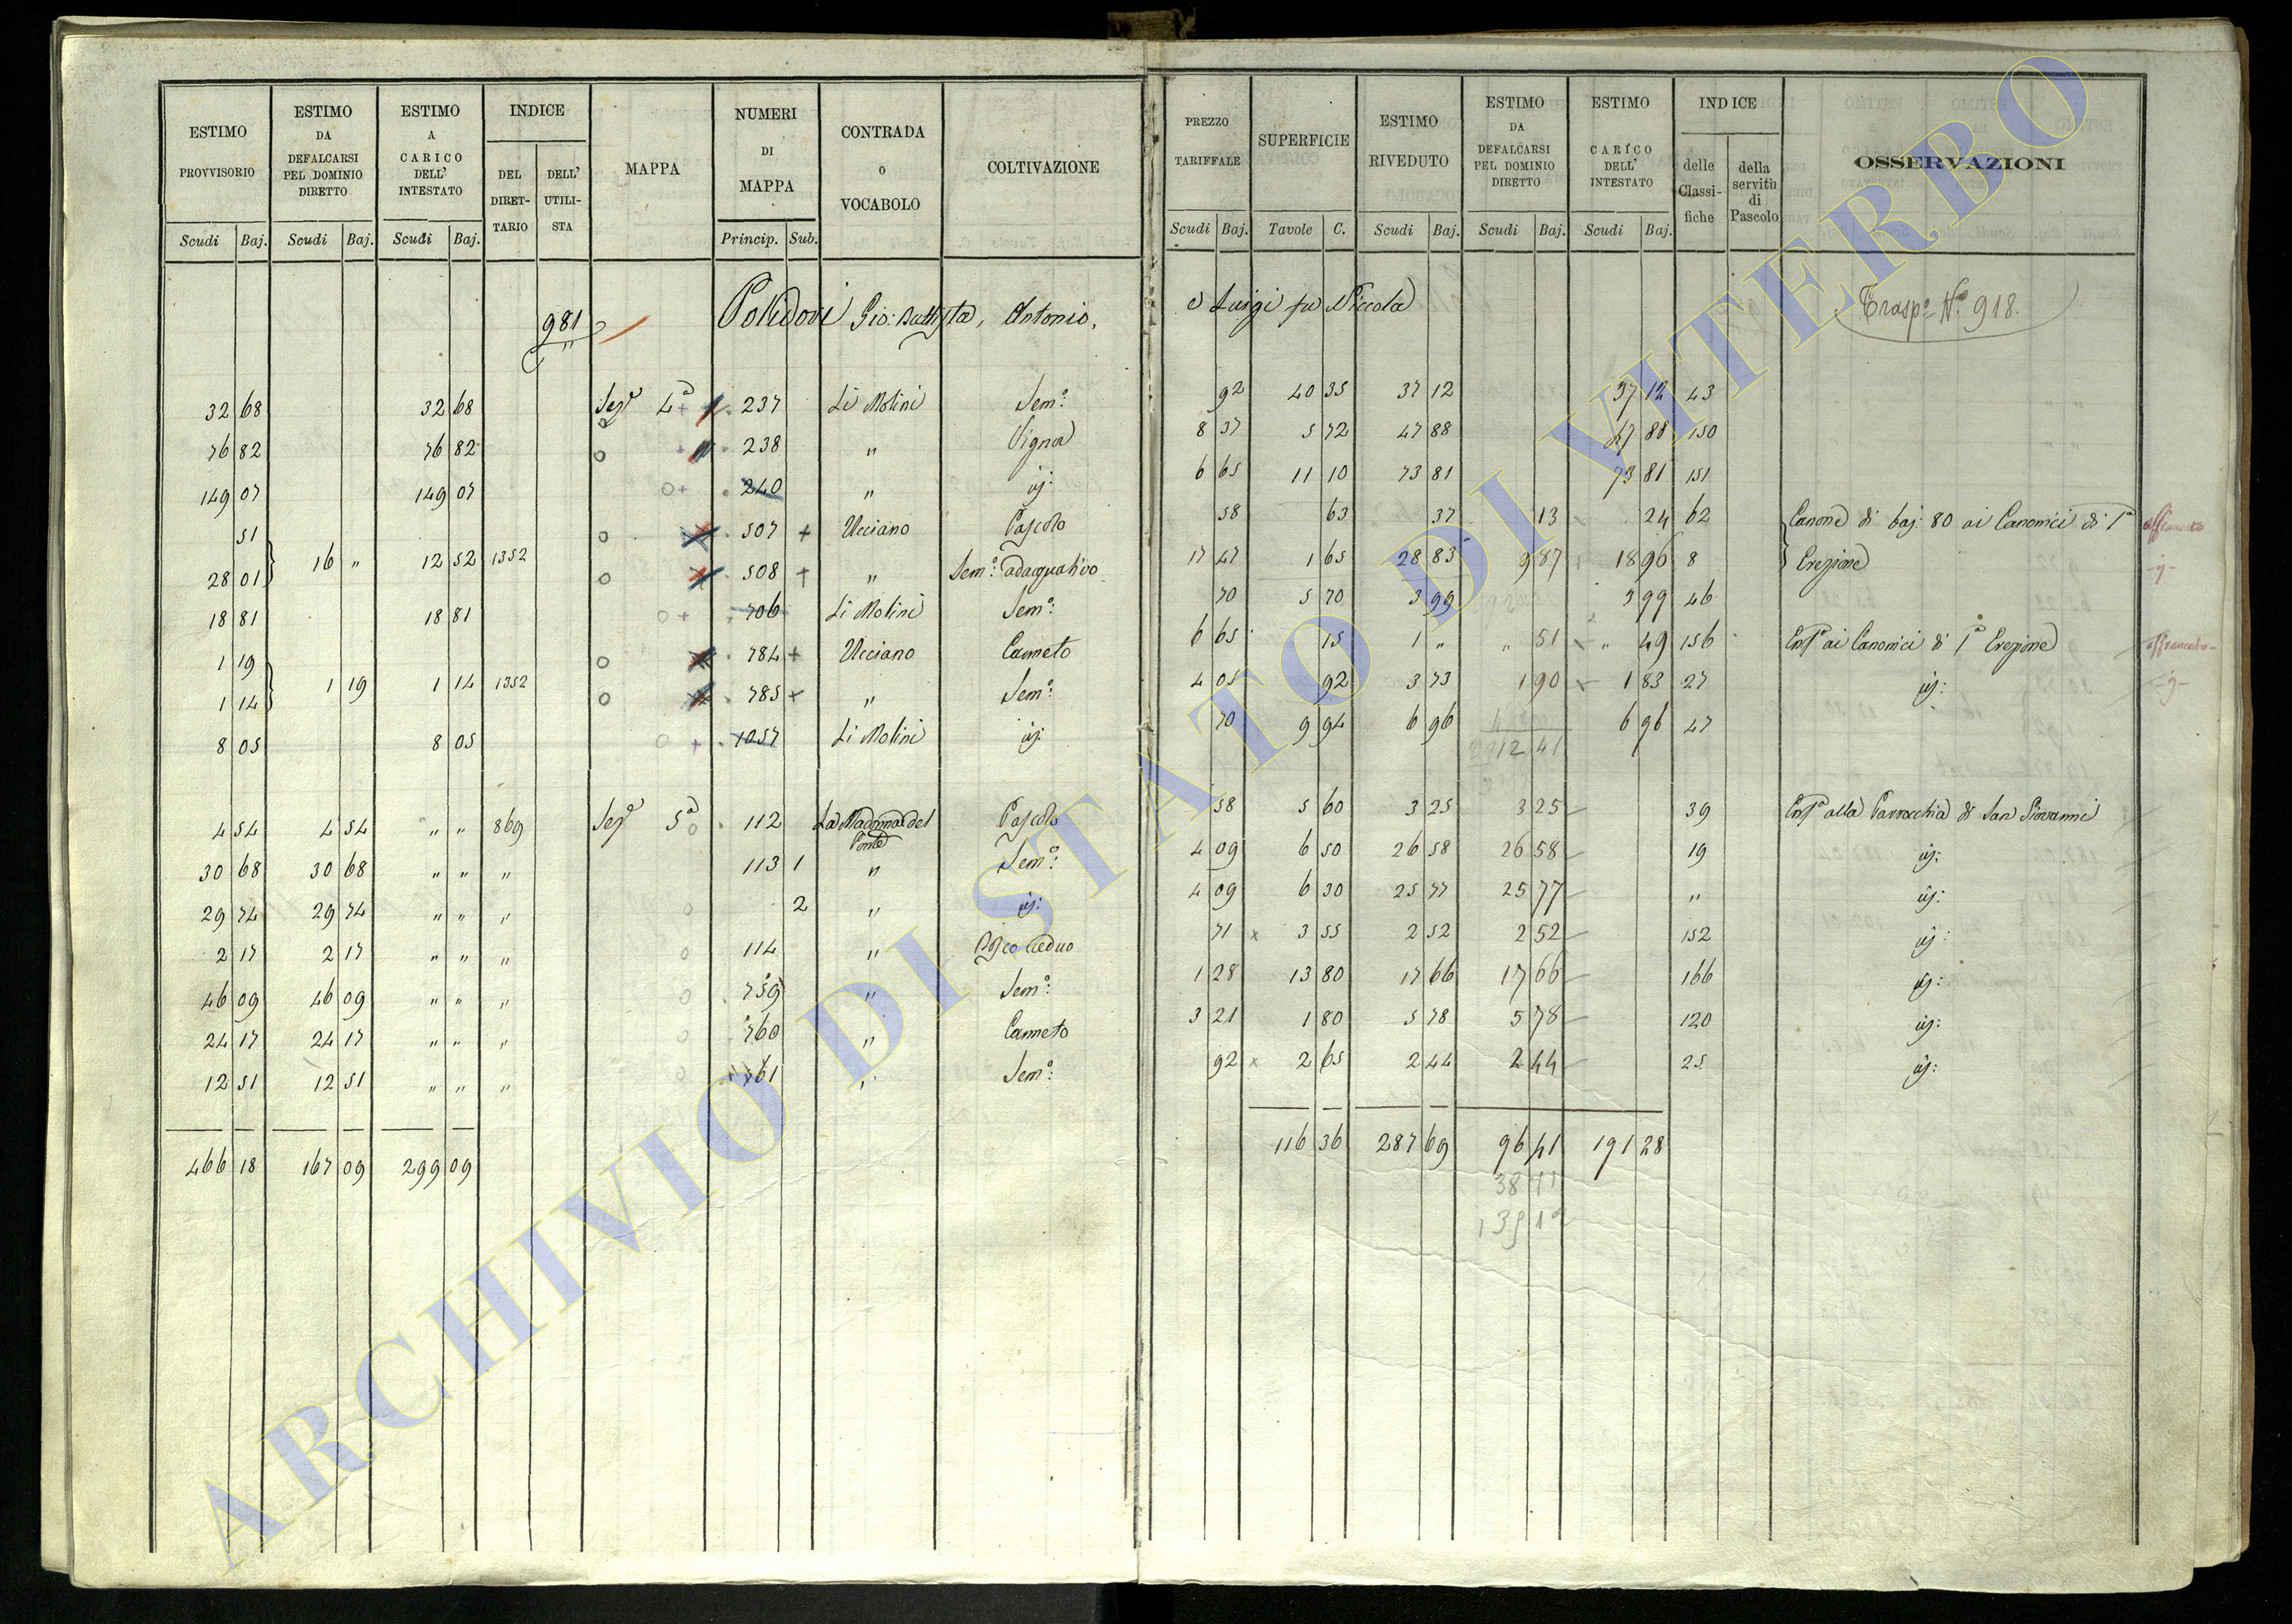 ESTIMO PROVVISORIO | ESTIMO DA DEFALCARSI PEL DOMINIO DIRETTO | ESTIMO A CARICO DELL' INTESTATO | INDICE | MAPPA | NUMERI DI MAPPA | CONTRADA o VOCABOLO | COLTIVAZIONE
DEL DIRETTARIO | DELL' UTILISTA
Scudi | Baj. | Scudi | Baj. | Scudi | Baj. | Princip. | Sub.
981 Polidori Gio: Battista, Antonio,
32 68 | 32 68 | Sezᵉ 4ᵃ | 237 | Li Molini | Semº:
76 82 | 76 82 | 238 | " | Vigna
149 07 | 149 07 | 240 | " | iȷ:
51 | 507 + | Ucciano | Pascolo
28 01 | 16 " | 12 52 | 1352 | 508 + | " | Semº: adacquativo
18 81 | 18 81 | 706 | Li Molini | Semº:
1 19 | 784 + | Ucciano | Canneto
1 14 | 1 19 | 1 14 | 1352 | 785 + | " | Semº:
8 05 | 8 05 | 1057 | Li Molini | iȷ:
4 54 | 4 54 | " " | 869 | Sezᵉ 5ᵃ | 112 | La Madonna del Ponte | Pascolo
30 68 | 30 68 | " " | " | 113 1 | " | Semº:
29 74 | 29 74 | " " | " | 2 | " | iȷ:
2 17 | 2 17 | " " | " | 114 | " | Bosco Ceduo
46 09 | 46 09 | " " | " | 759 | " | Semº:
24 17 | 24 17 | " " | " | 760 | " | Canneto
12 51 | 12 51 | " " | " | 761 | " | Semº:
466 18 | 167 09 | 299 09
PREZZO TARIFFALE | SUPERFICIE | ESTIMO RIVEDUTO | ESTIMO DA DEFALCARSI PEL DOMINIO DIRETTO | ESTIMO A CARICO DELL' INTESTATO | INDICE | OSSERVAZIONI
delle Classifiche | della servitù di Pascolo
Scudi | Baj. | Tavole | C. | Scudi | Baj. | Scudi | Baj. | Scudi | Baj.
e Luigi fu Niccola | Traspº Nº 918.
92 | 40 35 | 37 12 | 37 12 | 43
8 37 | 5 72 | 47 88 | 47 88 | 150
6 65 | 11 10 | 73 81 | 73 81 | 151
58 | 63 | 37 | 13 | 24 | 62 | Canone di baj: 80 ai Canonici di 1ᵃ | affrancato
17 47 | 1 65 | 28 83 | 9 87 | 18 96 | 8 | Erezione | -ȷ-
70 | 5 70 | 3 99 | 3 99 | 46
6 65 | 15 | 1 " | " 51 | " 49 | 156 | Entª ai Canonici di 1ᵃ Erezione | affrancato
4 05 | 92 | 3 73 | 1 90 | 1 83 | 27 | iȷ: | -ȷ-
70 | 9 94 | 6 96 | 6 96 | 47
12 41
58 | 5 60 | 3 25 | 3 25 | 39 | Entª alla Parrocchia di San Giovanni
4 09 | 6 50 | 26 58 | 26 58 | 19 | iȷ:
4 09 | 6 30 | 25 77 | 25 77 | " | iȷ:
71 | 3 55 | 2 52 | 2 52 | 152 | iȷ:
1 28 | 13 80 | 17 66 | 17 66 | 166 | iȷ:
3 21 | 1 80 | 5 78 | 5 78 | 120 | iȷ:
92 | 2 65 | 2 44 | 2 44 | 25 | iȷ:
116 36 | 287 69 | 96 41 | 191 28
ARCHIVIO DI STATO DI VITERBO